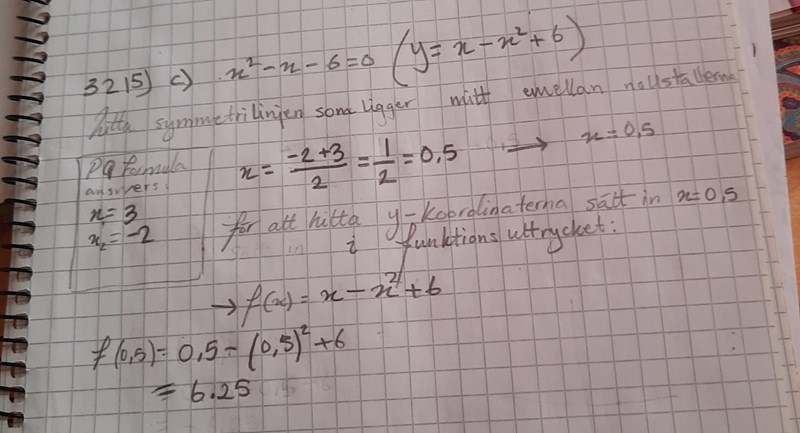 3215) c) x² - x - 6 = 0 (y = x - x² + 6)
hitta symmetrilinjen som ligger mitt emellan nollställerna
x = \frac{-2+3}{2} = \frac{1}{2} = 0,5 → x = 0,5
PQ formula
answers:
x = 3
x₂ = -2
för att hitta y-koordinaterna sätt in x = 0,5
i funktions uttrycket:
→ f(x) = x - x² + 6
f(0,5) = 0,5 - (0,5)² + 6
= 6.25